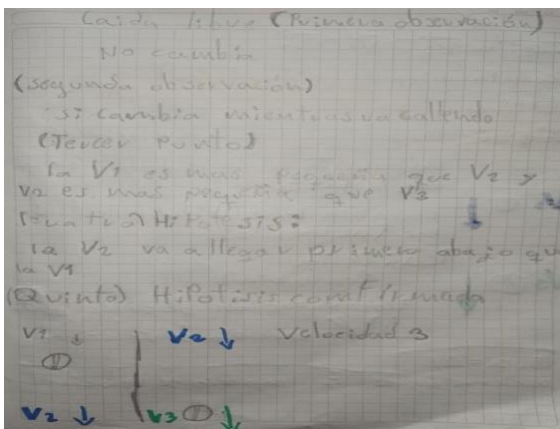 Caida libre (Primera observación)
No cambia
(segunda observación)
si cambia mientras va callendo
(Tercer Punto)
la V1 es mas pequeña que V2 y
V2 es mas pequeña que V3
(cuatro) Hipotesis:
la V2 va a llegar primero abajo que
la V1
(Quinto) Hipotisis comfirmada
V1 ↓ V2 ↓ Velocidad 3
V2 ↓ V3 ↓